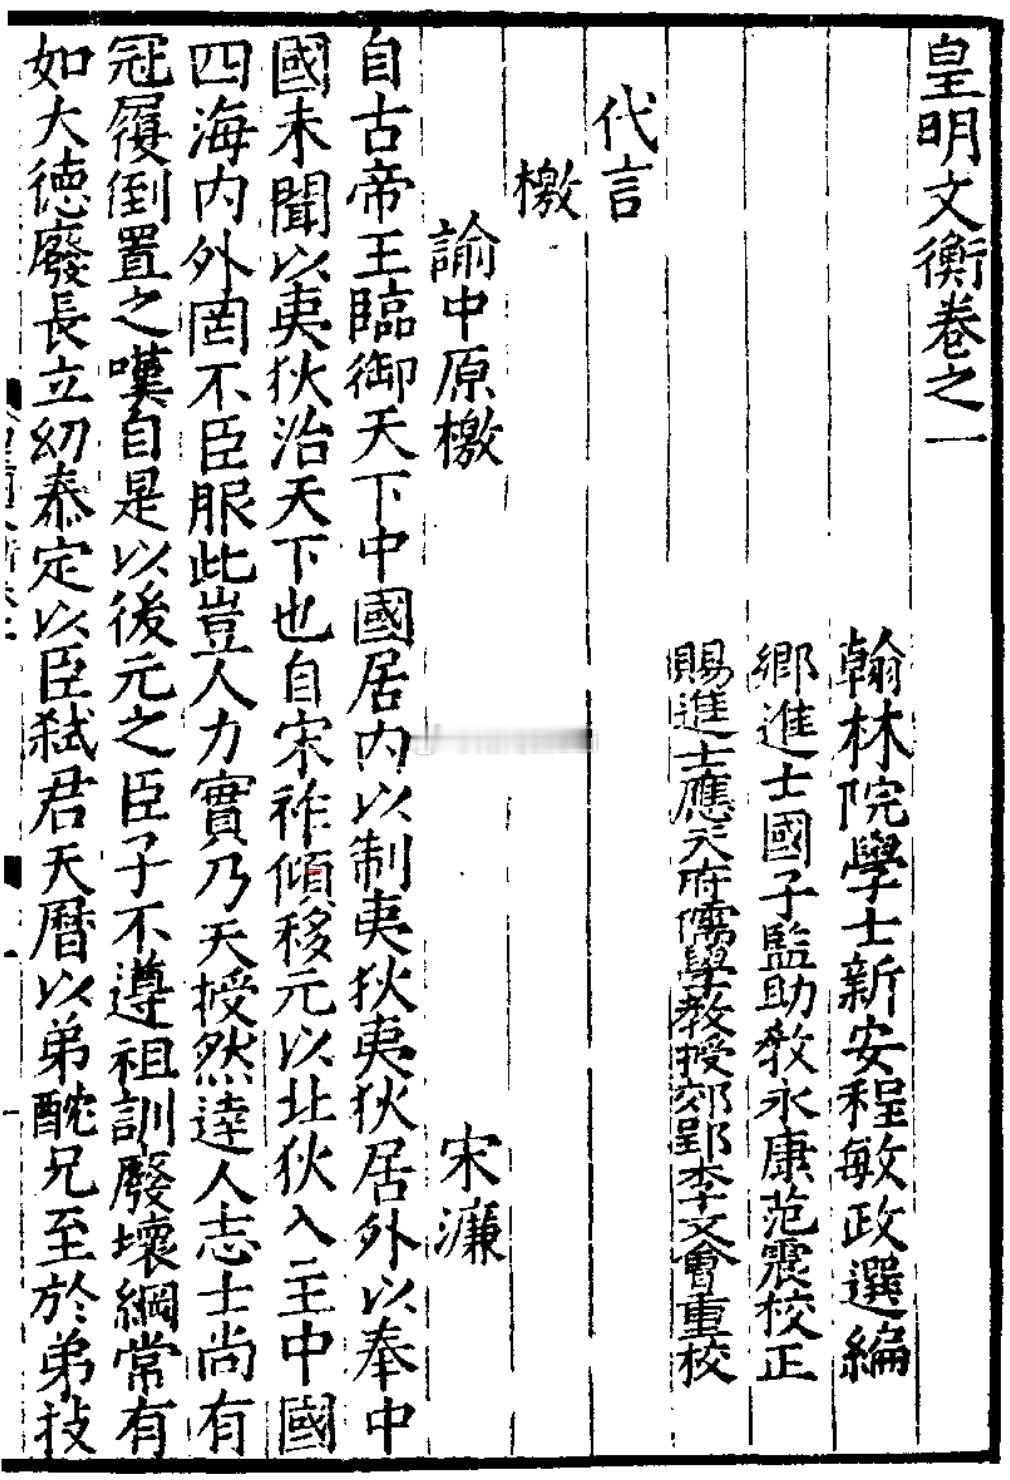 皇明文衡卷之一
翰林院學士新安程敏政選編
鄉進士國子監助教永康范震校正
賜進士應天府儒學教授郊郢李文會重校
代言
檄
諭中原檄 宋濂
自古帝王臨御天下中國居內以制夷狄夷狄居外以奉中
國未聞以夷狄治天下也自宋祚傾移元以北狄入主中國
四海內外罔不臣服此豈人力實乃天授然達人志士尚有
冠履倒置之嘆自是以後元之臣子不遵祖訓廢壞綱常有
如大德廢長立幼泰定以臣弒君天曆以弟酖兄至於弟收